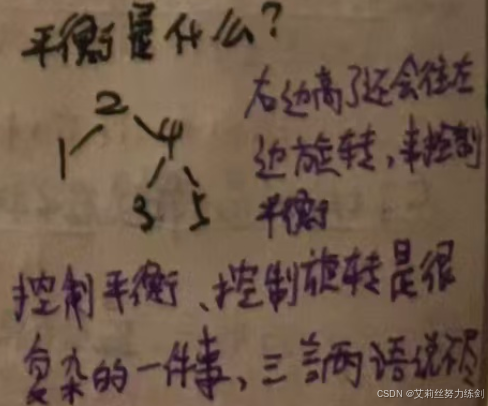 平衡是什么？
2
1 4
3 5
右边高了还会往左
边旋转，来控制
平衡
控制平衡、控制旋转是很
复杂的一件事，三言两语说不
CSDN @艾莉丝努力练剑